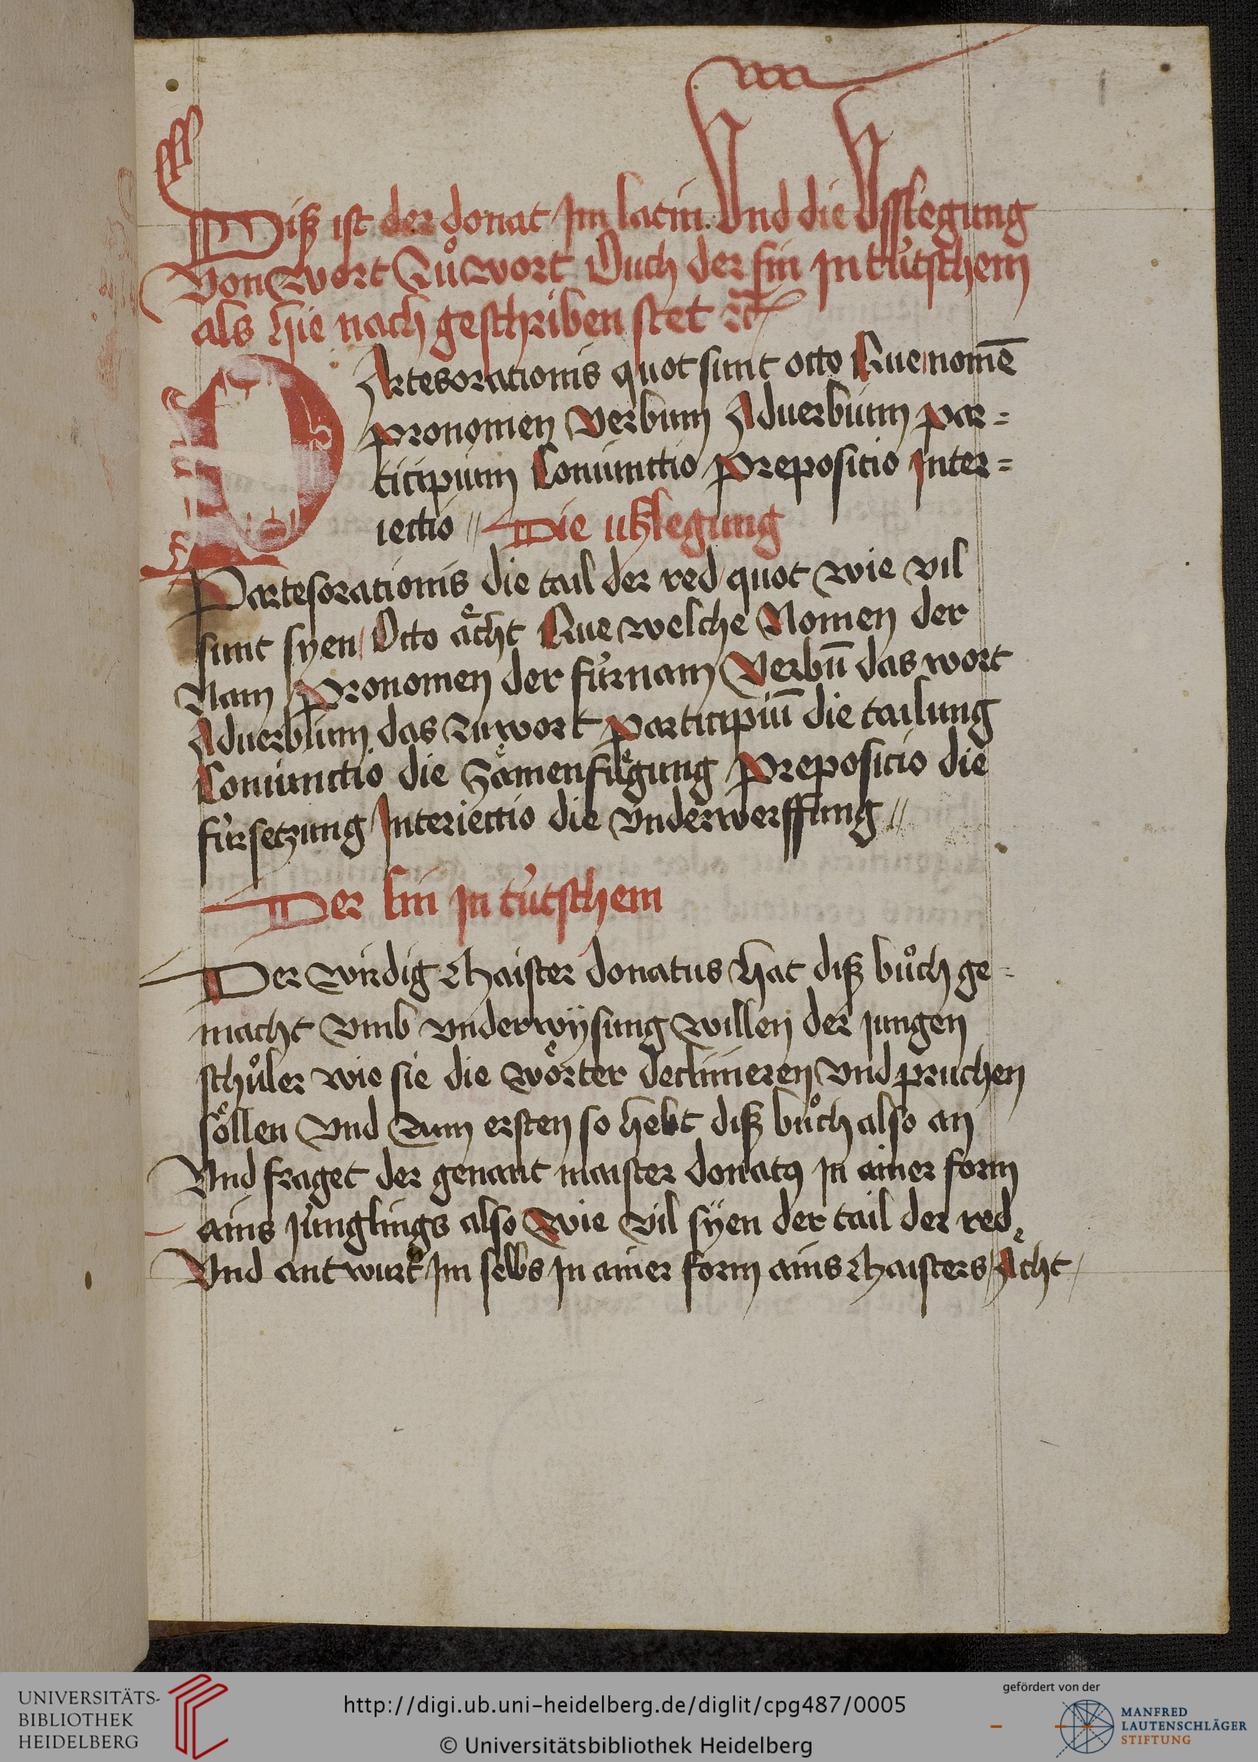 1
Diß ist der donat Im latin. Vnd die Vsslegung
Von wort Zů wort Ouch der sin in tútschem
als hie nach geschriben stet ꝛc̃
PArtesorationis quot sunt octo Que nomē
pronomen Verbum Aduerbium par=
ticipium Coniunctio prepositio Inter=
iectio // Die ußlegung
Partesorationis die tail der red quot wie vil
sunt syen Octo ächt Que welche Nomen der
Nam pronomen der fúrnam Verbū das wort
Aduerbium das zuwort participiū die tailung
Coniunctio die Zämenfuͤgung prepositio die
fúrsetzung Interiectio die vnderwerffung //
Der sin in tútschem
Der wirdig Maister donatus hat diß bůch ge=
macht Vmb vnderwÿsung willen der jungen
schůler wie sie die wörter declinieren vnd pruchen
söllen Vnd Zum ersten so hebt diß bůch also an
Vnd fraget der genant maister donatꝰ In ainer form
ains Júnglings also Wie Vil sÿen der tail der red
Vnd antwurt Im selbs In ainer form ains Maisters Ächt /
UNIVERSITÄTS-
BIBLIOTHEK
HEIDELBERG
http://digi.ub.uni-heidelberg.de/diglit/cpg487/0005
© Universitätsbibliothek Heidelberg
gefördert von der
MANFRED
LAUTENSCHLÄGER
STIFTUNG